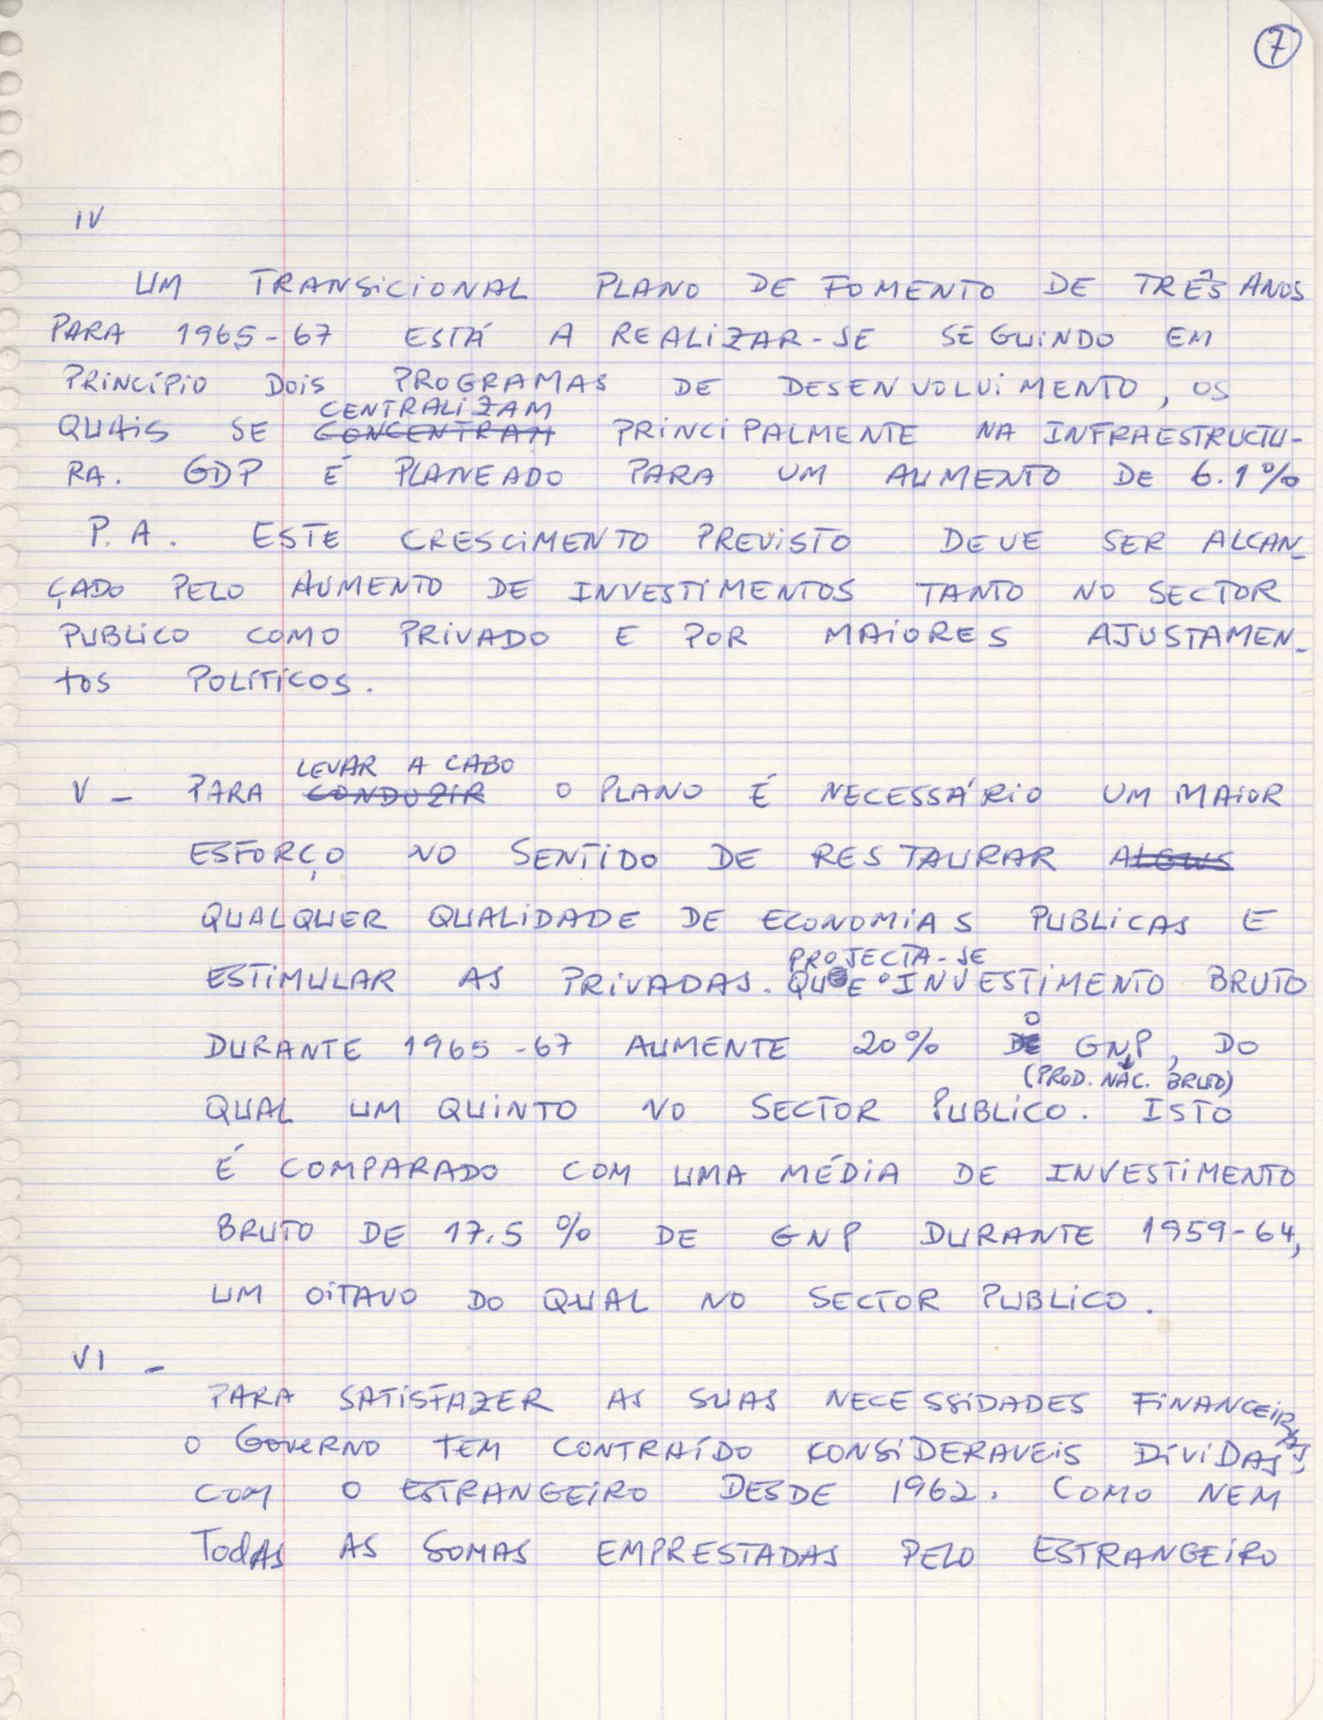 7
IV
UM TRANSICIONAL PLANO DE FOMENTO DE TRÊS ANOS
PARA 1965-67 ESTÁ A REALIZAR-SE SEGUINDO EM
PRINCÍPIO DOIS PROGRAMAS DE DESENVOLVIMENTO, OS
CENTRALIZAM
QUAIS SE CONCENTRAM PRINCIPALMENTE NA INFRAESTRUCTU-
RA. GDP É PLANEADO PARA UM AUMENTO DE 6.1%
P.A. ESTE CRESCIMENTO PREVISTO DEVE SER ALCAN-
ÇADO PELO AUMENTO DE INVESTIMENTOS TANTO NO SECTOR
PUBLICO COMO PRIVADO E POR MAIORES AJUSTAMEN-
TOS POLÍTICOS.
LEVAR A CABO
V - PARA CONDUZIR O PLANO É NECESSÁRIO UM MAIOR
ESFORÇO NO SENTIDO DE RESTAURAR ALGUS
QUALQUER QUALIDADE DE ECONOMIAS PUBLICAS E
PROJECTA-SE
ESTIMULAR AS PRIVADAS. QUE O INVESTIMENTO BRUTO
O
DURANTE 1965-67 AUMENTE 20% DE GNP, DO
(PROD. NAC. BRUTO)
QUAL UM QUINTO NO SECTOR PUBLICO. ISTO
É COMPARADO COM UMA MÉDIA DE INVESTIMENTO
BRUTO DE 17.5% DE GNP DURANTE 1959-64,
UM OITAVO DO QUAL NO SECTOR PUBLICO.
VI -
PARA SATISFAZER AS SUAS NECESSIDADES FINANCEIRAS
O GOVERNO TEM CONTRAÍDO CONSIDERAVEIS DÍVIDAS
COM O ESTRANGEIRO DESDE 1962. COMO NEM
TODAS AS SOMAS EMPRESTADAS PELO ESTRANGEIRO